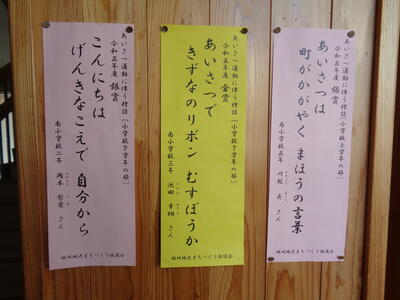 あいさつ運動に伴う標語 [小学校上学年の部]
令和五年度 銀賞
あいさつは
町がかがやく まほうの言葉
南小学校五年 さん
姫城地区まちづくり協議会
あいさつ運動に伴う標語 [小学校下学年の部]
令和五年度 金賞
あいさつで
きずなのリボン むすぼうか
南小学校三年 池田 さん
姫城地区まちづくり協議会
あいさつ運動に伴う標語 [小学校下学年の部]
令和五年度 銀賞
こんにちは
げんきなこえで 自分から
南小学校二年 岡本 梨愛 さん
姫城地区まちづくり協議会